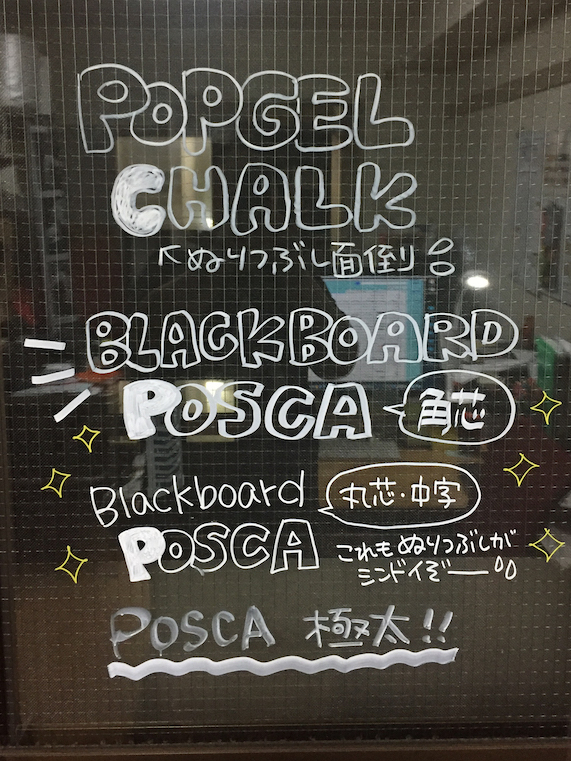 POPGEL
CHALK
↖ぬりつぶし面倒
BLACKBOARD
POSCA
角芯
Blackboard
丸芯・中字
POSCA
これもぬりつぶしが
ミンドイぞー
POSCA 極太!!